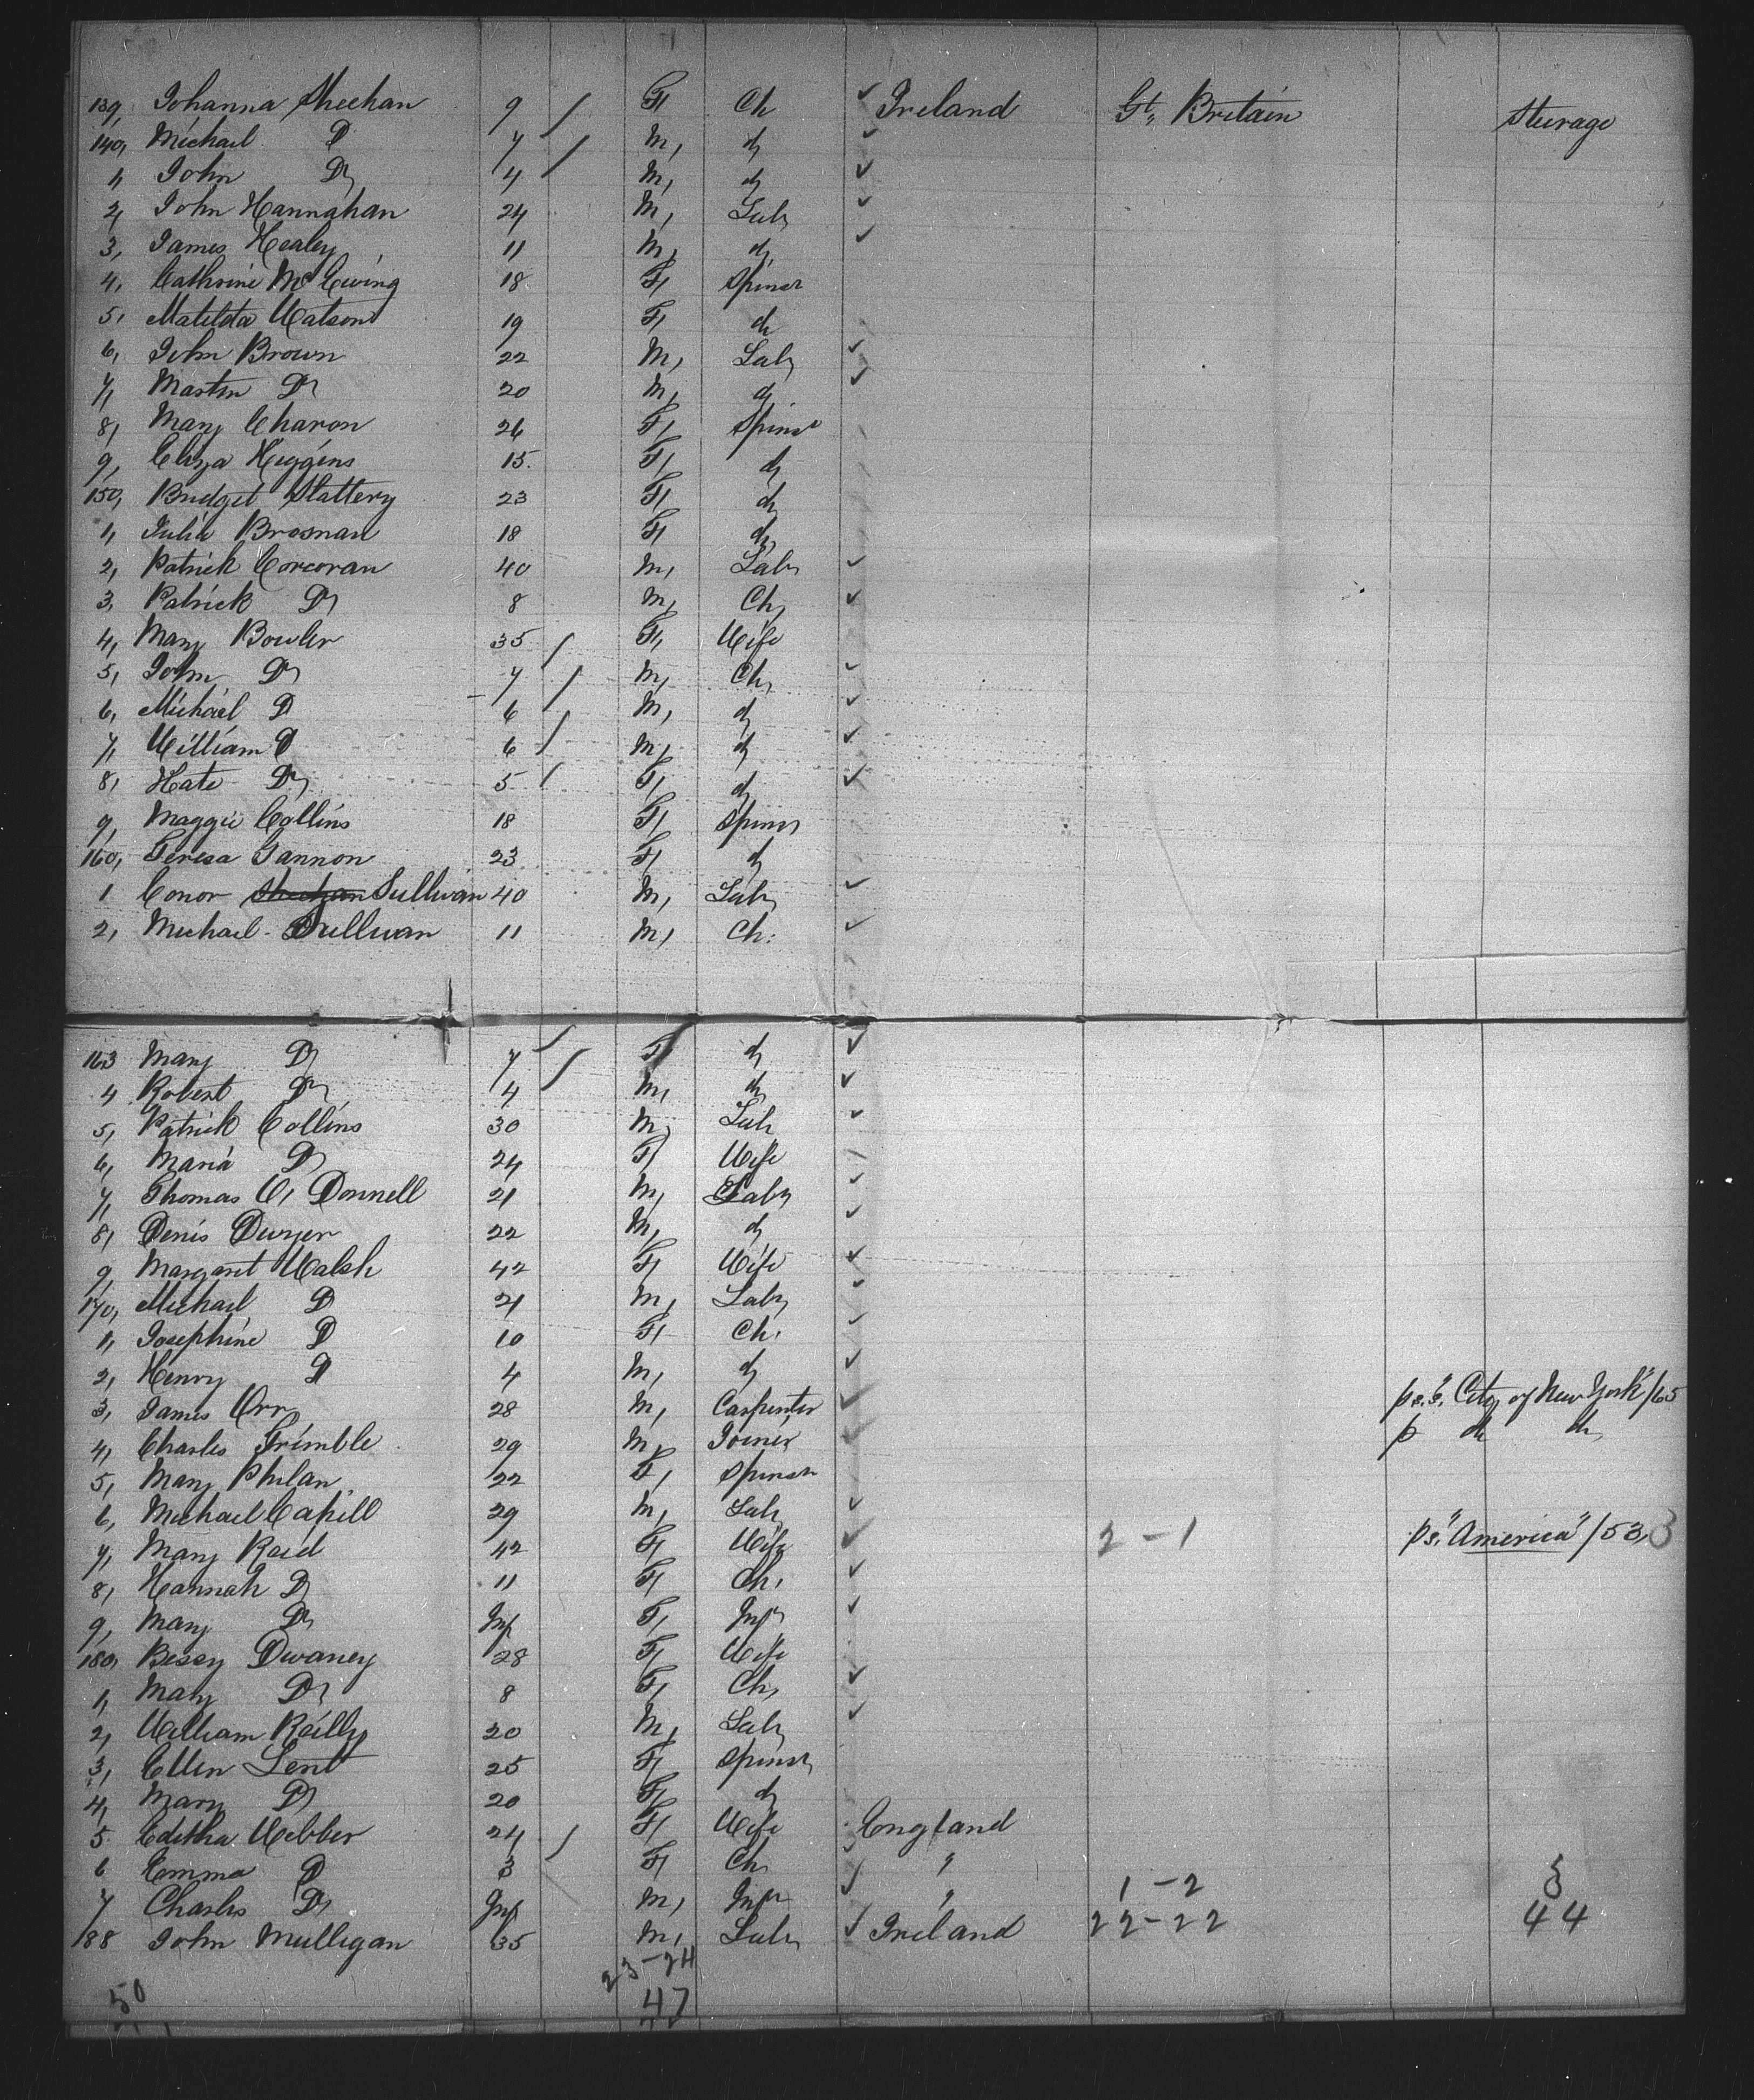 139, Johanna Sheehan 9 F, Ch Ireland Gt, Britain Steerage
140, Michael D 7 M, d,
1, John Do, 4 M, d,
2, John Hannahan 24 M, Lab,
3, James Healey 11 M, d,
4, Cathrine Mc Ewing 18 F, Spinsr
5, Matilda Watson 19 F, do
6, John Brown 22 M, Lab,
7, Martin Do 20 M, d,
8, Mary Charon 26 F, Spinsr
9, Eliza Higgins 15 F, d,
150, Bridget Slattery 23 F, d,
1, Julia Brosnan 18 F, do,
2, Patrick Corcoran 40 M, Lab,
3, Patrick Do 8 M, Ch,
4, Mary Bowler 35 F, Wife
5, John Do 7 M, Ch,
6, Michael D 6 M, d,
7, William D 6 M, d,
8, Kate Do, 5 F, d,
9, Maggie Collins 18 F, Spinsr
160, Teresa Gannon 23 F, d,
1 Conor Sheehan Sullivan 40 M, Lab,
2, Michael Sullivan 11 M, Ch.
163 Mary Do 7 F, d,
4 Robert Do 4 M, do
5, Patrick Collins 30 M, Lab
6, Maria Do 24 F, Wife
7, Thomas O, Donnell 21 M, Lab,
8, Denis Dwyer 22 M, d,
9, Margaret Walsh 42 F, Wife
170, Michael D 21 M, Lab,
1, Josephine D 10 F, Ch.
2, Henry D 4 M, d,
3, James Orr 28 M, Carpenter ps.s. "City of New York" /65
4, Charles Trimble 29 M, Joiner p do do,
5, Mary Philan 22 F, Spinsr
6, Michael Cahill 29 M, Lab,
7, Mary Reid 42 F, Wife 2 - 1 ps, "America" /53, 3
8, Hannah D 11 F, Ch,
9, Mary Do Inf F, Inft
180, Bessy Dwaney 28 F, Wife
1, Mary Do 8 F, Ch,
2, William Reilly 20 M, Lab,
3, Ellen Lent 25 F, Spinsr
4, Mary Do 20 F, d,
5 Editha Webber 24 F, Wife England
6 Emma D 3 F, Ch. "
7 Charles Do Inf M, Inft " 1 - 2 3
188 John Mulligan 35 M, Lab, Ireland 22 - 22 44
23 - 24
50 47